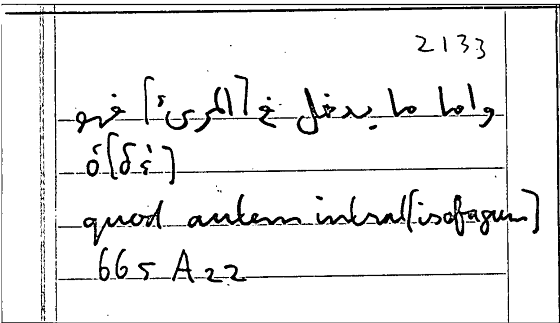 2133
واما ما يدخل في [المرىء] فهو
ὁ [δέ]
quod autem intrat [isofagum]
665 A 22